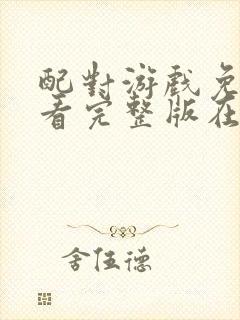 配對游戲免
看完整版在
舍伍德